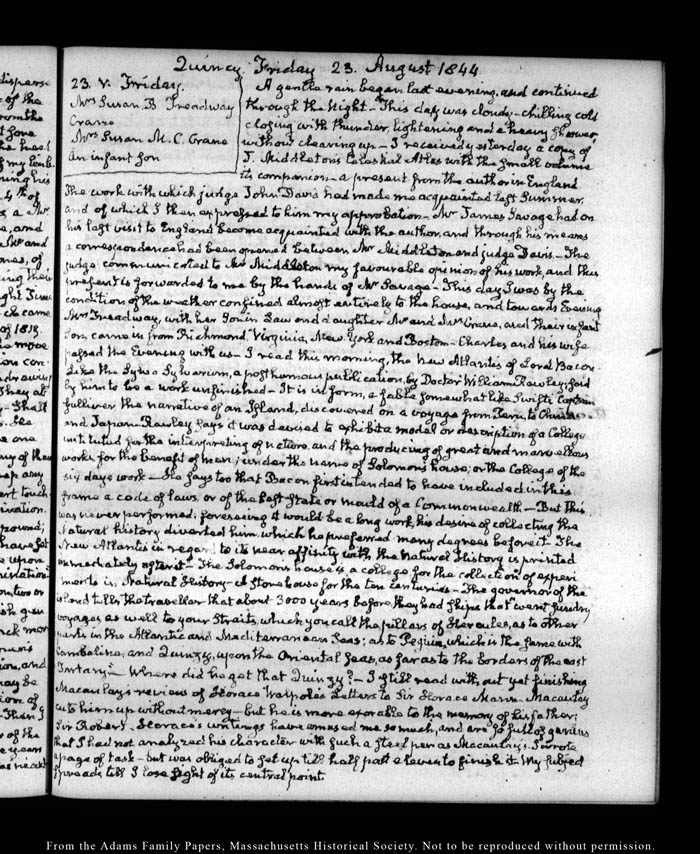 Quincy Friday 23. August 1844
23. V. Friday.
Mrs Susan B Treadway
Crane
Mrs Susan M. C. Crane
an infant son
A gentle rain began last evening, and continued
through the Night - This day was cloudy - chilling cold
closing with thunder, lightening and a heavy shower,
without clearing up - I received yesterday a copy of
J. Middleton's Celestial Atlas with the small volume
its companion - a present from the author in England
The work with which judge John Davis had made me acquainted last Summer,
and of which I then expressed to him my approbation - Mr James Savage had on
his last visit to England become acquainted with the author, and through his means
a correspondence had been opened between Mr Middleton and judge Davis - The
judge communicated to Mr Middleton my favourable opinion of his work, and this
present is forwarded to me by the hands of Mr Savage - This day I was by the
condition of the weather confined almost entirely to the house, and towards Evening
Mrs Treadway, with her Son in Law and daughter Mr and Mrs Crane, and their infant
Son, came in from Richmond Virginia, New York and Boston - Charles and his wife
passed the Evening with us - I read this morning, the New Atlantis of Lord Bacon
Like the Sylva Sylvarum, a posthumous publication, by Doctor William Rawley, said
by him to be a work unfinished - It is in form, a fable somewhat like Swift's Captain
Gulliver the narrative of an Island, discovered on a voyage from Peru, to China
and Japan - Rawley says it was devised to exhibit a model or description of a College
instituted for the interpreting of nature, and the producing of great and marvellous
works, for the benefit of men; under the name of Solomon's house; or the College of the
six days work - He says too that Bacon first intended to have included in this
frame a code of laws, or of the best State or mould of a Commonwealth - But this
was never performed: foreseeing it would be a long work, his desire of collecting the
Natural history diverted him, which he preferred many degrees before it. The
New Atlantis in regard to its near affinity with the Natural History is printed
immediately after it - The Solomon's house is a college for the collection of experi
ments in Natural History - A Storehouse for the ten Centuries - The governor of the
island tells the traveller that about 3000 years before they had ships that "went sundry
voyages as well to your Straits, which you call the pillars of Hercules, as to other
parts in the Atlantic and Mediterranean Seas; as to Peguin, which is the same with
Cambaline, and Quinzy, upon the Oriental Seas, as far as to the borders of the east
Tartary" - Where did he get that Quinzy? - I still read without yet finishing
Macaulay's review of Horace Walpole's Letters to Sir Horace Mann. Macaulay
cuts him up without mercy - but he is more exorable to the memory of his father;
Sir Robert. Horace's writings have amused me so much, and are so full of genius
that I had not analyzed his character with such a steel pen as Macaulay's. I wrote
a page of task - but was obliged to set up till half past eleven to finish it. My subject
spreads till I lose sight of its central point.
From the Adams Family Papers, Massachusetts Historical Society. Not to be reproduced without permission.